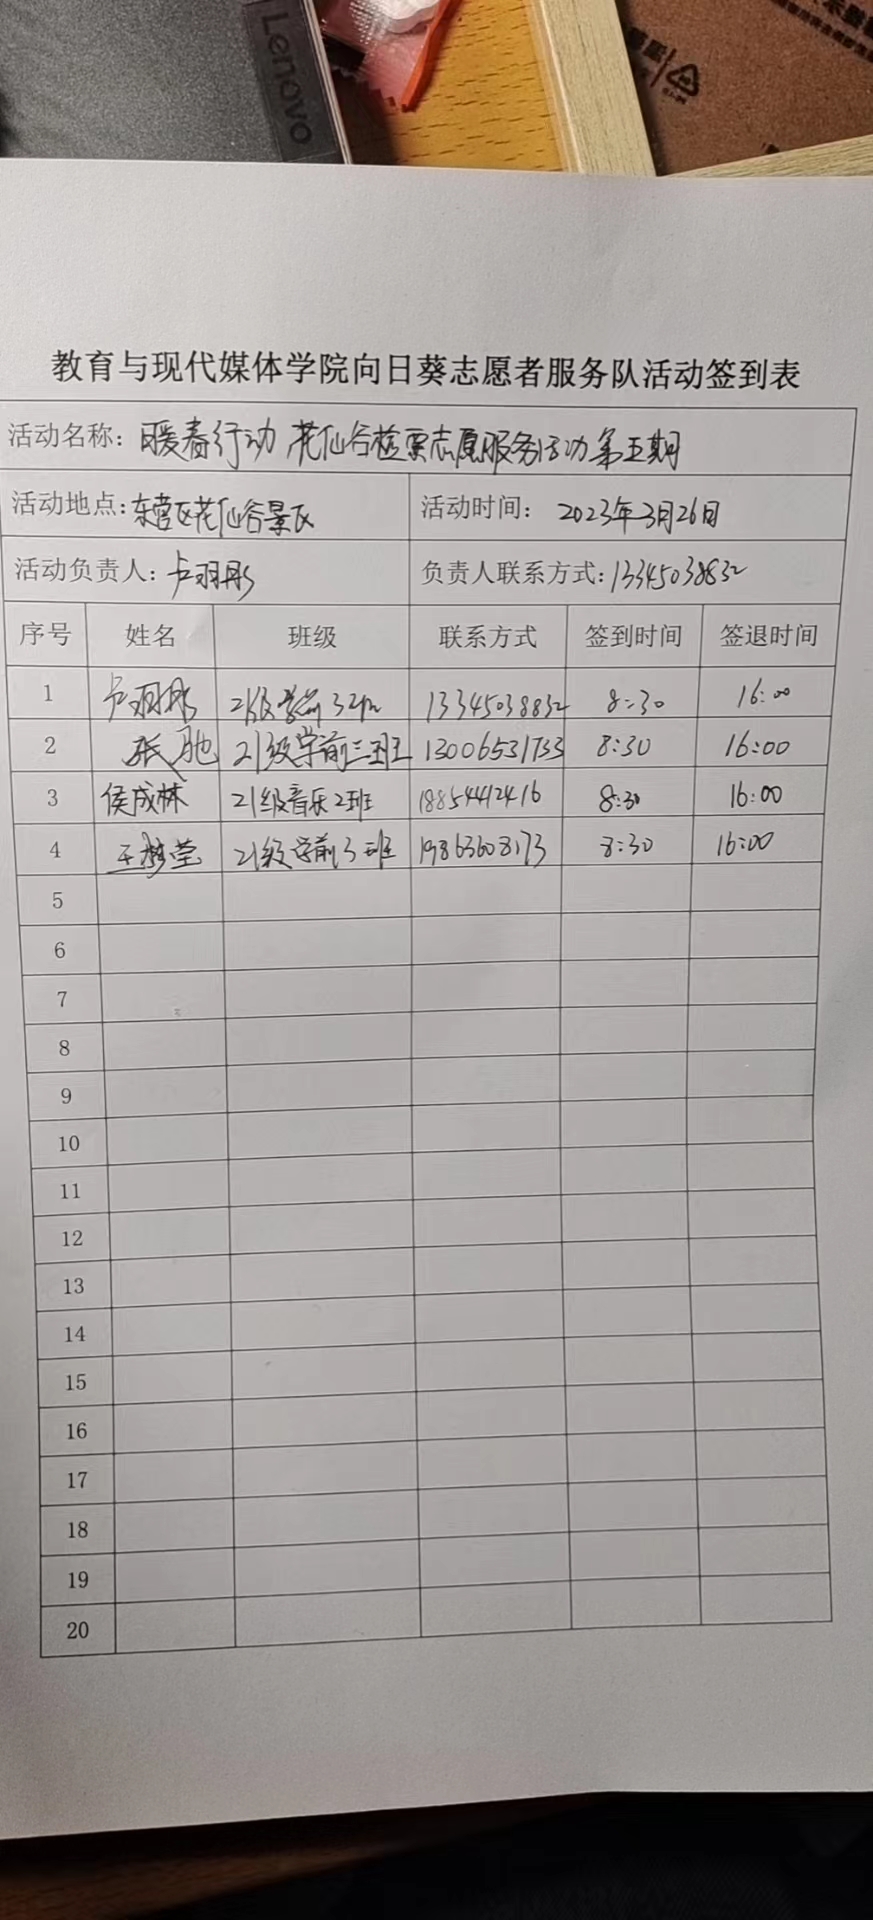 Lenovo
教育与现代媒体学院向日葵志愿者服务队活动签到表
活动名称：暖春行动 花仙谷检票志愿服务活动第五期
活动地点：东营区花仙谷景区 活动时间： 2023年3月26日
活动负责人：卢羽彤 负责人联系方式：13345038832
序号 姓名 班级 联系方式 签到时间 签退时间
1 卢羽彤 21级学前3班 13345038832 8:30 16:00
2 张驰 21级学前三班 13006531733 8:30 16:00
3 侯成林 21级音乐2班 18854412416 8:30 16:00
4 王梦莹 21级学前3班 19863608173 8:30 16:00
5
6
7
8
9
10
11
12
13
14
15
16
17
18
19
20